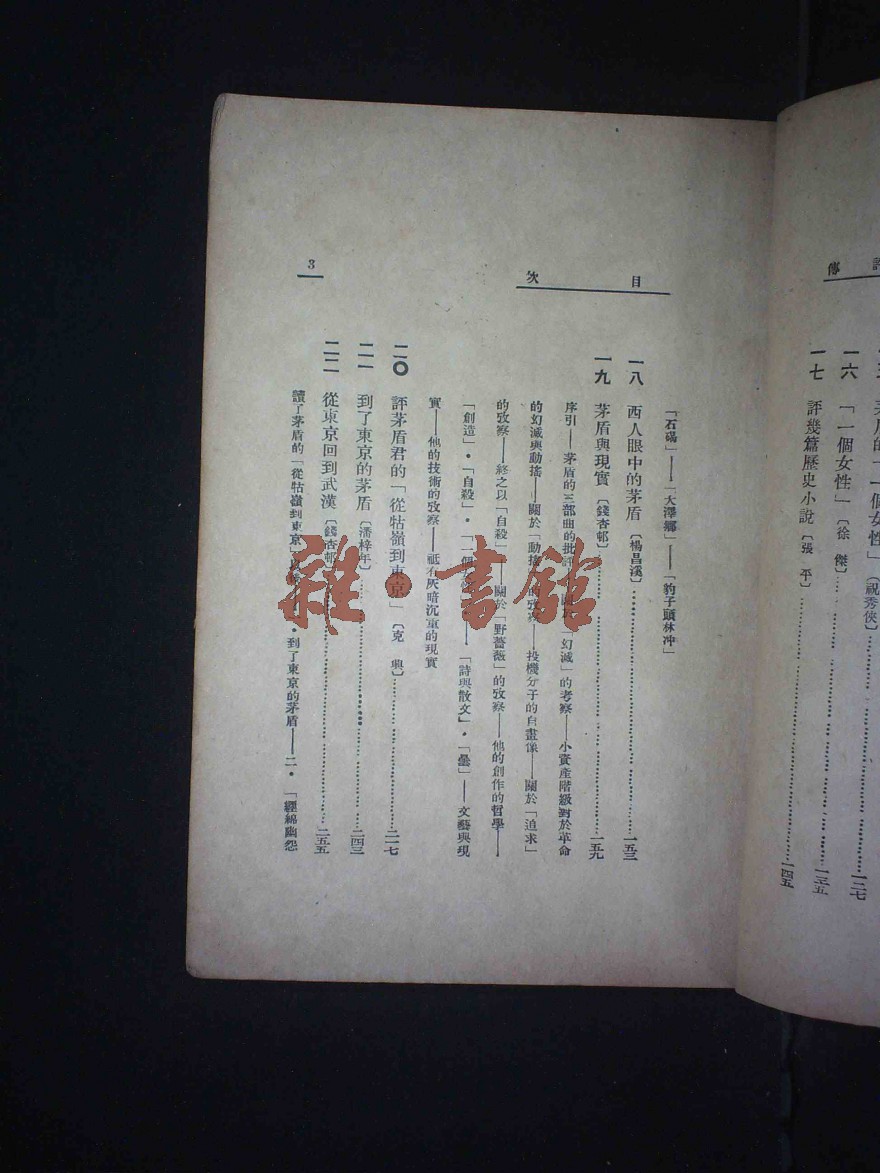 評傳
一六 「一個女性」〔徐傑〕……一二七
一七 評幾篇歷史小說〔張平〕……一四五
目次
「石碣」——「大澤鄉」——「豹子頭林冲」
一八 西人眼中的茅盾〔楊昌溪〕……一五三
一九 茅盾與現實〔錢杏邨〕……一五九
序引——茅盾的三部曲的批評——關於「幻滅」的考察——小資產階級對於革命
的幻滅與動搖——關於「動搖」的攷察——投機分子的自畫像——關於「追求」
的攷察——終之以「自殺」——關於「野薔薇」的攷察——他的創作的哲學——
「創造」・「自殺」・「一個女性」・「詩與散文」・「曇」——文藝與現
實——他的技術的攷察——祗有灰暗沉重的現實
二〇 評茅盾君的「從牯嶺到東京」〔克興〕……二一七
二一 到了東京的茅盾〔潘梓年〕……二四三
二二 從東京回到武漢〔錢杏邨〕……二五五
讀了茅盾的「從牯嶺到東京」・到了東京的茅盾——二・「纏綿幽怨
3
雜・書館